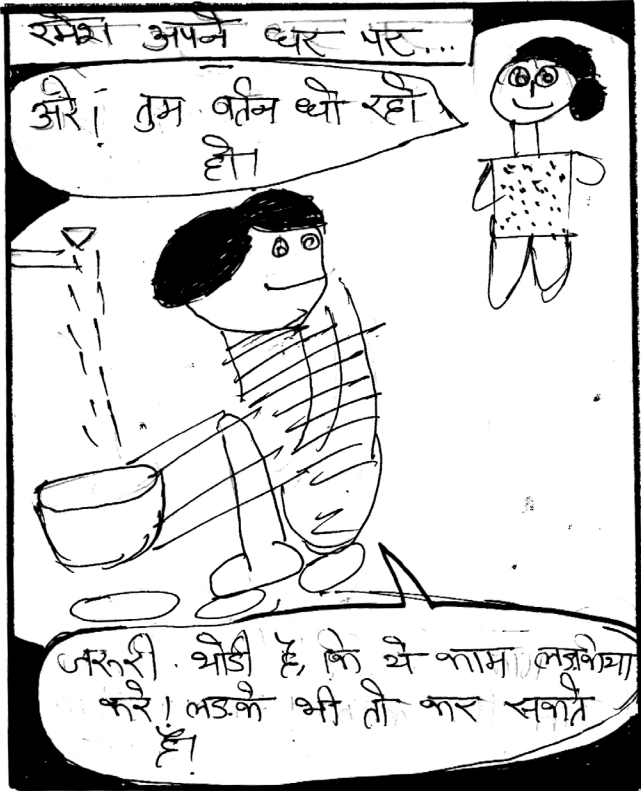 रमेश अपने घर पर...
अरे! तुम बर्तन धो रहो
हो।
जरूरी थोडी है, कि ये काम लडकिया
करे! लडके भी तो कर सकते
हैं।